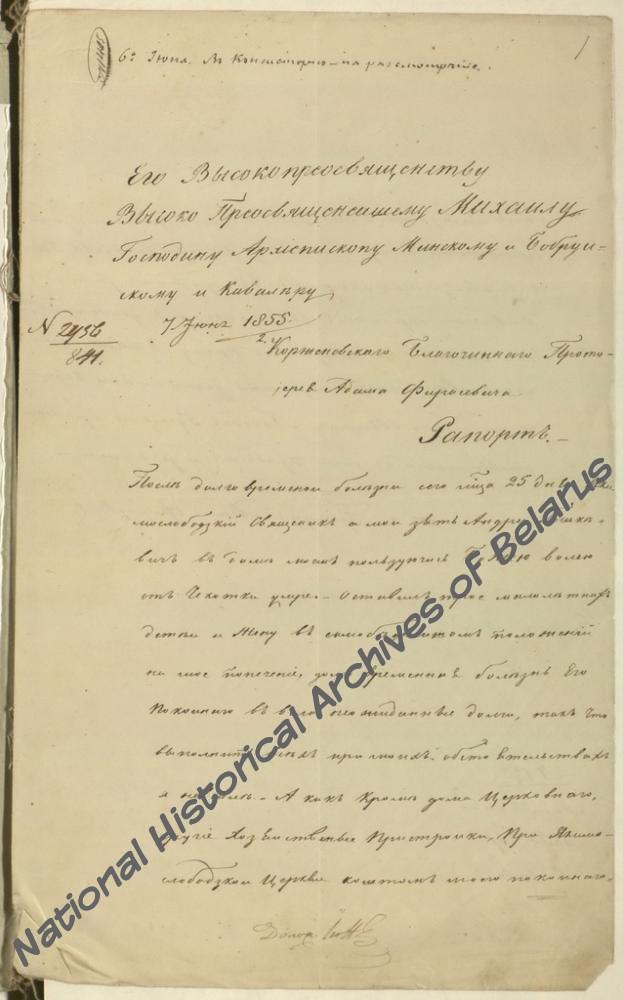 6º Июня. Въ Консисторію на разсмотрѣніе.
1
Его Высокопреосвященству
Высоко Преосвященнѣйшему Михаилу
Господину Архіепископу Минскому и Бобруй-
скому и Кавалеру
7 Июня 1855.
N 2456
841.
Коржоневского Благочиннаго Прото-
іерея Адама Фирасевича
Рапортъ.
Послѣ долговременной болѣзни сего м-ца 25 дня
мослободзкій Священникъ а мой зять Андрей
вичъ въ домѣ моемъ пользуючись Божіею волею
отъ Чехотки умре. Оставилъ трое малолѣтнихъ
дѣтей и Жену въ самобѣдномъ положеніи
на мое попеченіе, долговременная болѣзнь Его
Покойнаго въ неожиданные долги, такъ что
выполнить ихъ при моихъ обстоятельствахъ
я не - А какъ кромѣ дома Церковнаго,
другіе Хозяйственные Пристройки, При Якимо-
слободзкой Церкви коштомъ моего покойнаго
National Historical Archives of Belarus